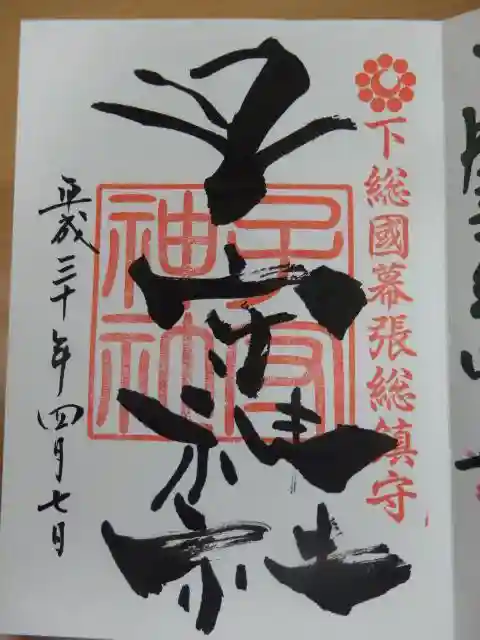 下総國幕張総鎮守
子守神社
子守神社
平成三十年四月七日